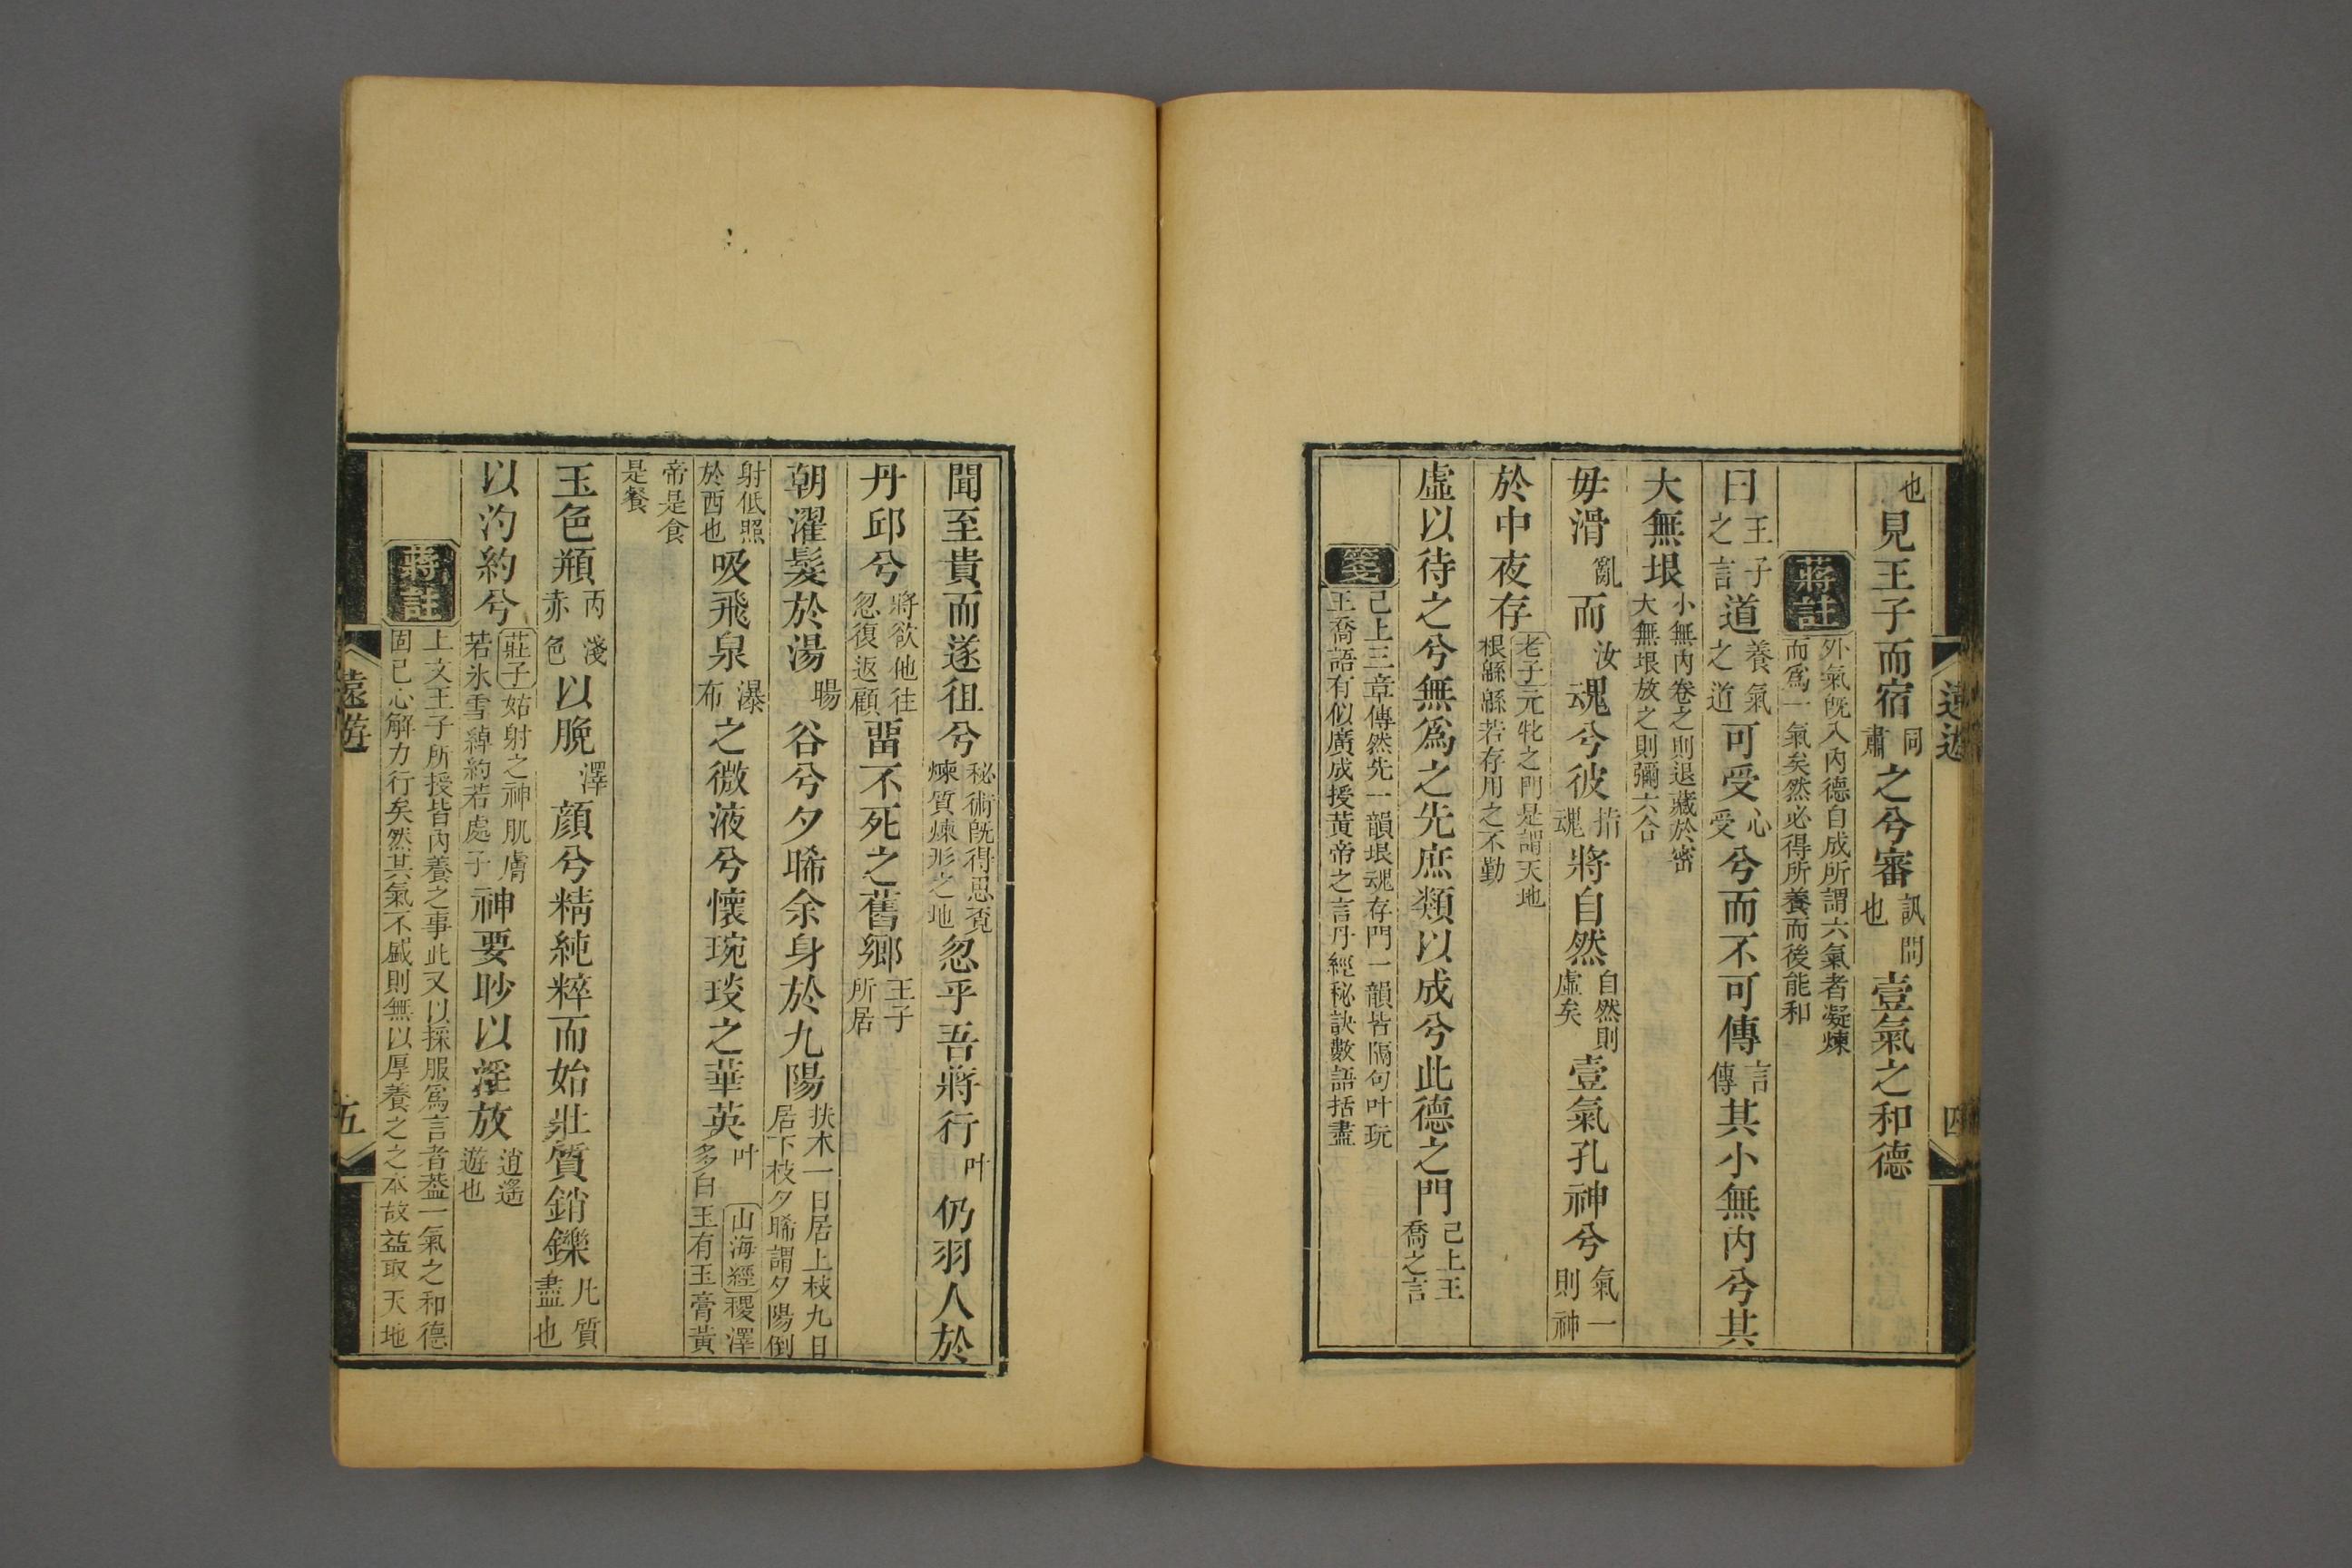 遠遊
四
也見王子而宿同肅之兮審訊問也壹氣之和德
蔣註外氣旣入內德自成所謂六氣者凝煉而爲一氣矣然必得所養而後能和
曰王子之言道養氣之道可受心受兮而不可傳言傳其小無內兮其
大無垠小無內卷之則退藏於密大無垠放之則彌六合
毋滑亂而汝魂兮彼指魂將自然自然則虛矣壹氣孔神兮氣一則神
於中夜存老子元牝之門是謂天地根緜緜若存用之不勤
虛以待之兮無爲之先庶類以成兮此德之門已上王喬之言
箋已上三章傳然先一韻垠魂存門一韻皆隔句叶玩王喬語有似廣成授黃帝之言丹經秘訣數語括盡
聞至貴而遂徂兮秘術旣得思覓煉質煉形之地忽乎吾將行叶仍羽人於
丹邱兮將欲他往忽復返顧畱不死之舊鄉王子所居
朝濯髮於湯暘谷兮夕晞余身於九陽扶木一日居上枝九日居下枝夕晞謂夕陽倒
射低照於西也吸飛泉瀑布之微液兮懷琬琰之華英叶山海經稷澤多白玉有玉膏黃
帝是食是餐
玉色頩丙赤淺色以脕澤顏兮精純粹而始壯質銷鑠凡質盡也
以汋約兮莊子姑射之神肌膚若氷雪綽約若處子神要眇以淫放逍遙遊也
蔣註上文王子所授皆內養之事此又以採服爲言者葢一氣之和德固已心解力行矣然其氣不盛則無以厚養之之本故益取天地
遠遊
五